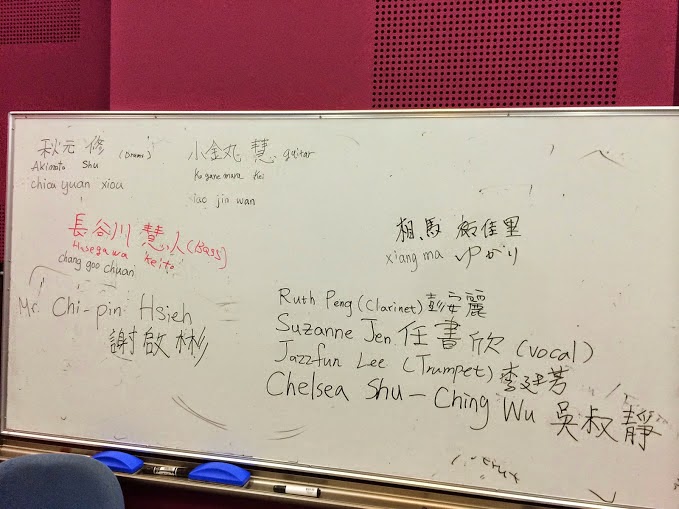 秋元 修 (Drums)
Akimoto Shu
chiou yuan xiou
小金丸 慧 guitar
Kogane maru Kei
iao jin wan
長谷川 慧人 (Bass)
Hasegawa Keito
chang goo chuan
相馬 佳里
xiang ma ゆかり
Mr. Chi-pin Hsieh
謝啟彬
Ruth Peng (Clarinet) 彭安麗
Suzanne Jen 任書欣 (vocal)
Jazzfun Lee (Trumpet) 李建芳
Chelsea Shu-Ching Wu 吳叔靜